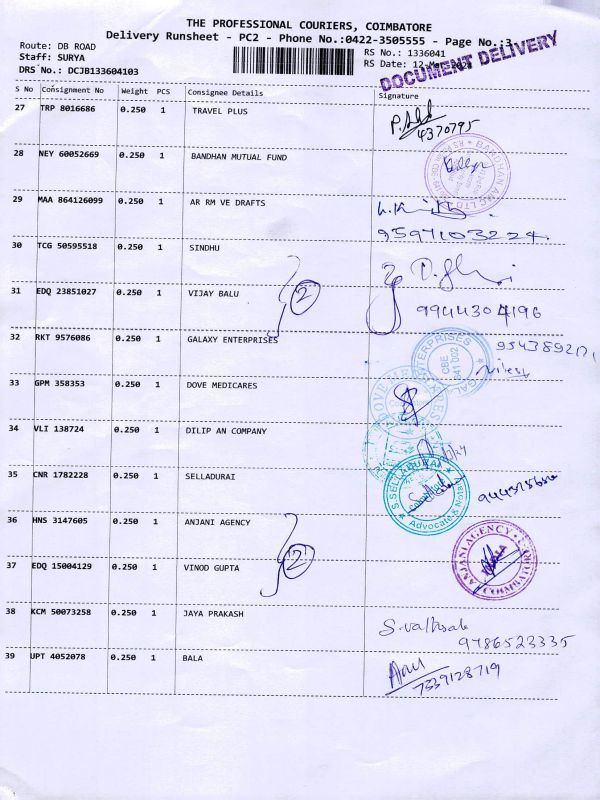 THE PROFESSIONAL COURIERS, COIMBATORE
Delivery Runsheet - PC2 - Phone No.:0422-3505555 - Page No.:3
Route: DB ROAD
RS No.: 1336041
Staff: SURYA
RS Date: 12-Mar-
DRS No.: DCJB133604103
DOCUMENT DELIVERY
S No Consignment No Weight PCS Consignee Details Signature
27 TRP 8016686 0.250 1 TRAVEL PLUS
4370795
28 NEY 60052669 0.250 1 BANDHAN MUTUAL FUND
BANDHAN AMC LTD
29 MAA 864126099 0.250 1 AR RM VE DRAFTS
9597103224
30 TCG 50595518 0.250 1 SINDHU
2
31 EDQ 23851027 0.250 1 VIJAY BALU
9944304196
32 RKT 9576086 0.250 1 GALAXY ENTERPRISES
ENTERPRISES
CBE
641 002
33 GPM 358353 0.250 1 DOVE MEDICARES
DOVE
34 VLI 138724 0.250 1 DILIP AN COMPANY
35 CNR 1782228 0.250 1 SELLADURAI
S.SELLADURAI
Advocate & Nota
36 HNS 3147605 0.250 1 ANJANI AGENCY
ANJANI AGENCY
2
37 EDQ 15004129 0.250 1 VINOD GUPTA
38 KCM 50073258 0.250 1 JAYA PRAKASH
9786523335
39 UPT 4052078 0.250 1 BALA
7339128719